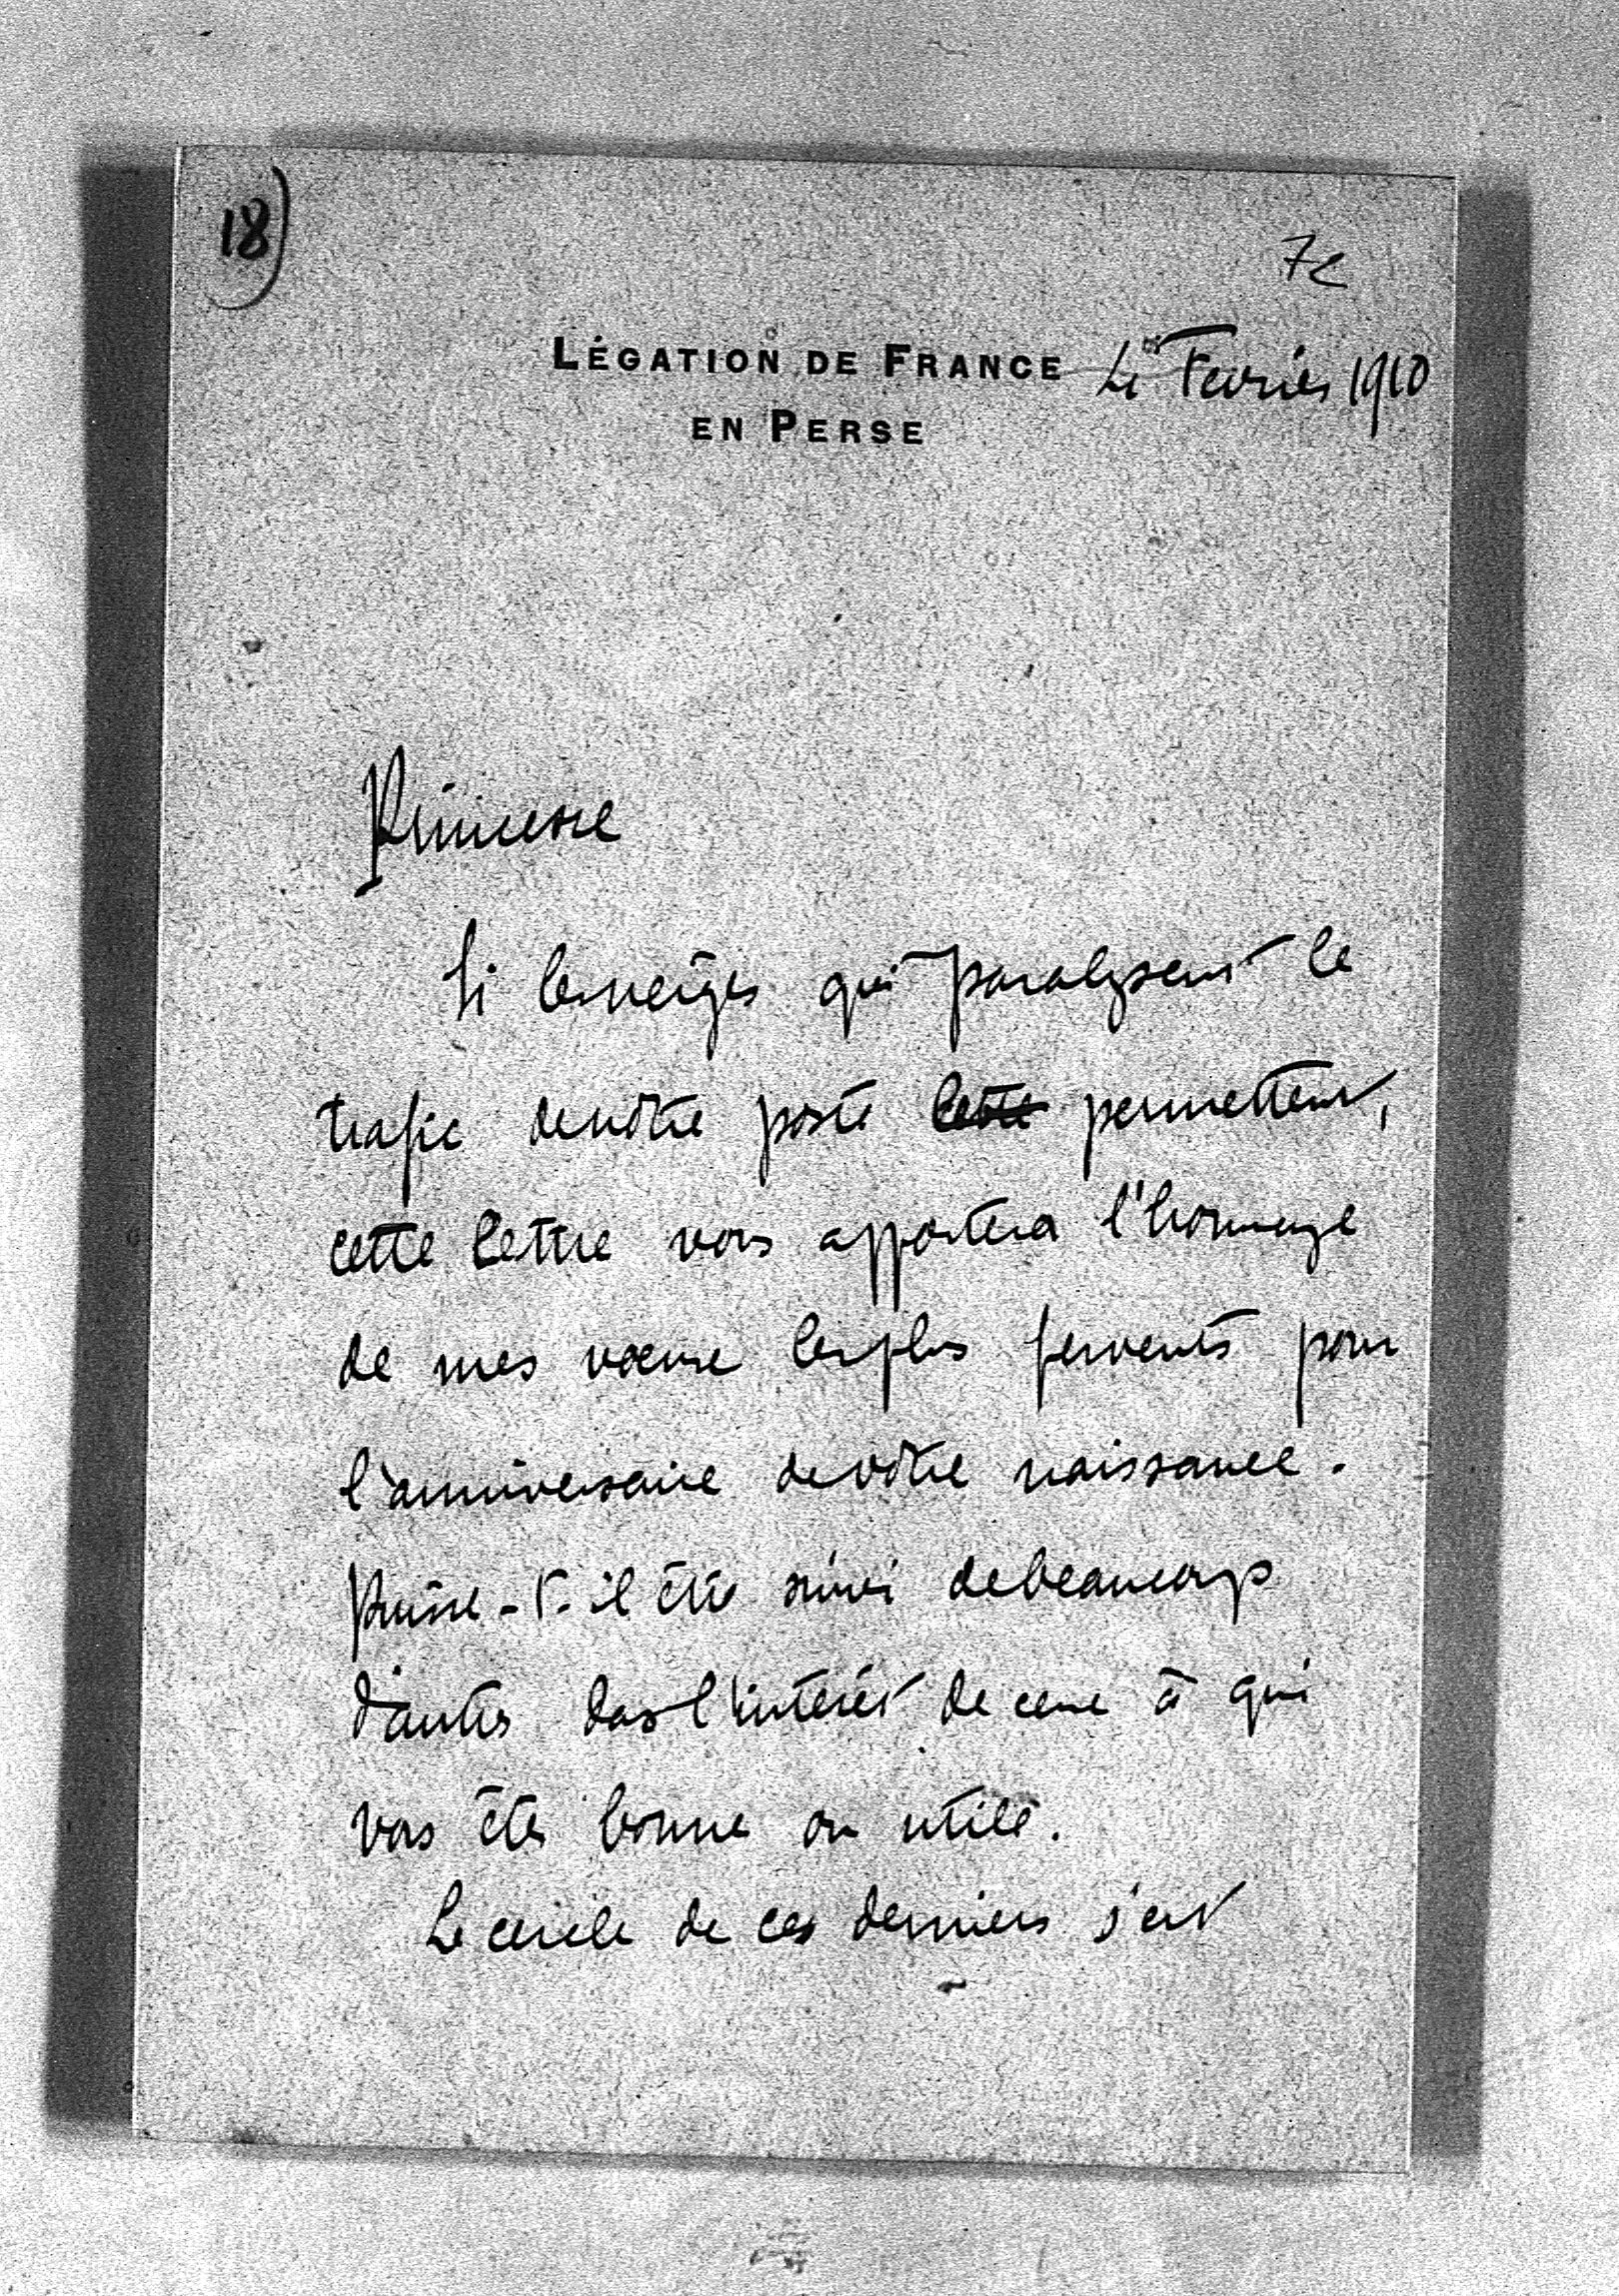 18)
7e
LÉGATION DE FRANCE
EN PERSE
Le Fevrier 1910
Princesse
Si les neiges qui paralysent le
trafic de notre poste cette permettent,
cette lettre vous apportera l'hommage
de mes vœux les plus fervents pour
l'anniversaire de votre naissance.
Puisse-t-il être suivi de beaucoup
d'autres dans l'intérêt de ceux à qui
vous êtes bonne ou utile.
Le cercle de ces derniers s'est